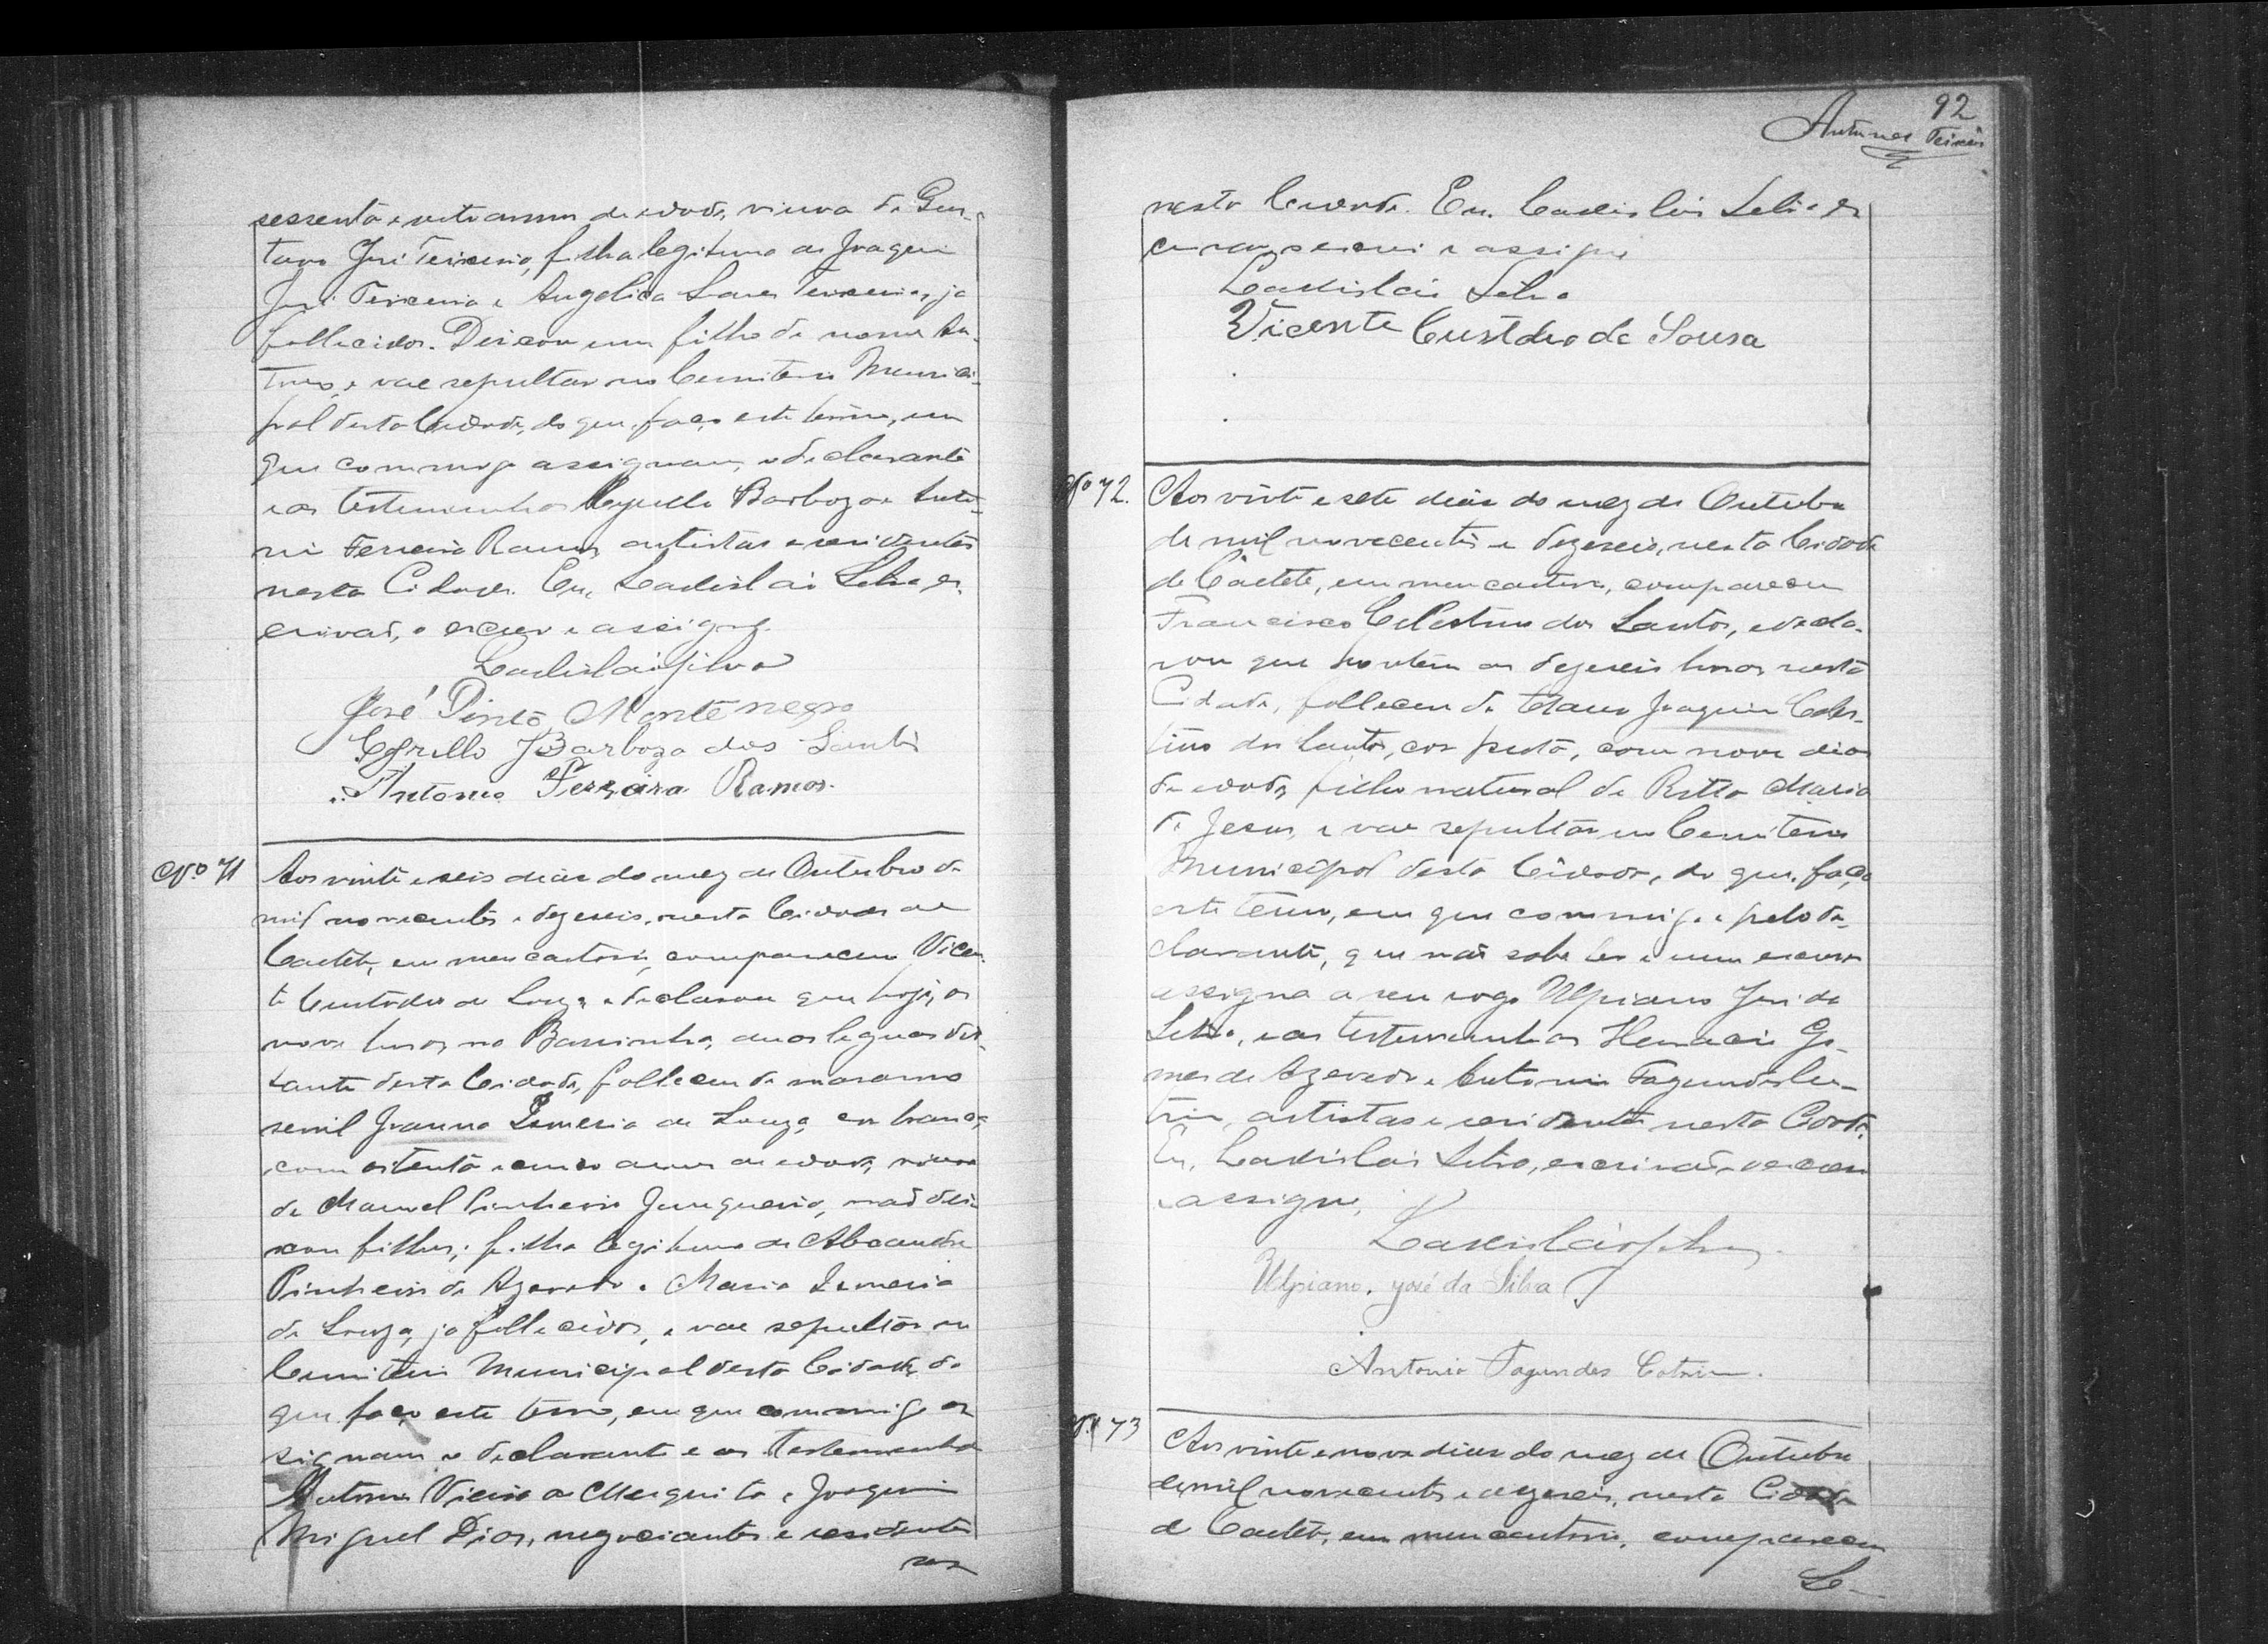 sessenta e oito annos de edade, viuva de Gus-
tavo José Teixeira, filha legitima de Joaquim
José Teixeira e Angelica Teixeira, ja
fallecidos. Deixou um filho de nome
e vae sepultar no Cemiterio Munici-
pal desta Cidade, do que faço este termo, em
que commigo assignam, o declarante
e as testemunhas Cyrillo Barboza e Anto-
nio Ferreira Ramos, artistas e residentes
nesta Cidade. Eu, Ladislái Silva, es-
crivaõ, o escrevi e assigno.
Ladislái Silva
José Pinto Montenegro
Cyrillo Barboza dos Santos
Antonio Ferreira Ramos.
Nº 71
Aos vinte e seis dias do mez de Outubro de
mil novecentos e dezeseis, nesta Cidade de
Caeteté, em meu cartorio, compareceu Vicen-
te Custodio de Souza e declarou que hoje, as
nove horas no Barrinha, duas leguas dis-
tante desta Cidade, falleceu de marasmo
senil Joanna Ismeria de Souza, cor branca,
com oitenta e cinco annos de edade, viuva
de Manoel Pinheiro Junqueira, naõ dei-
xou filhos; filha legitima de Alexandre
Pinheiro de Azevedo e Maria Ismeria
de Souza, ja fallecidos, e vae sepultar no
Cemiterio Municipal desta Cidade, do
que faço este termo, em que commigo as-
signam o declarante e as testemunhas
Antonio Vieira de Mesquita e Joaquim
Miguel Dias, negociantes e residentes
nes-
92
Antunes Teixeira
nesta Cidade. Eu, Ladislái Silva es-
crivaõ, o escrevi e assigno
Ladislái Silva
Vicente Custodio de Sousa
Nº 72.
Aos vinte e sete dias do mez de Outubro
de mil novecentos e dezeseis, nesta Cidade
de Caeteté, em meu cartorio, compareceu
Francisco Celestino dos Santos, e decla-
rou que hontem as dezeseis horas nesta
Cidade, falleceu de tetano Joaquim Celes-
tino dos Santos, cor preta, com nove dias
de edade, filho natural de Ritta Maria
de Jesus, e vae sepultar no Cemiterio
Municipal desta Cidade, do que faço
este termo, em que commigo e pelo de-
clarante, que naõ sabe ler e nem escrever
assigna a seu rogo Ulpiano José da
Silva, e as testemunhas Horacio Go-
mes de Azevedo e Antonio Fagundes Co-
trim, artistas e residentes nesta
Eu, Ladislái Silva, escrivaõ, o escrevi
e assigno.
Ladislái Silva
Ulpiano José da Silva
Antonio Fagundes Cotrim.
Nº 73
Aos vinte e nove dias do mez de Outubro
de mil novecentos e dezeseis, nesta Cidade
de Caeteté, em meu cartorio, compareceu